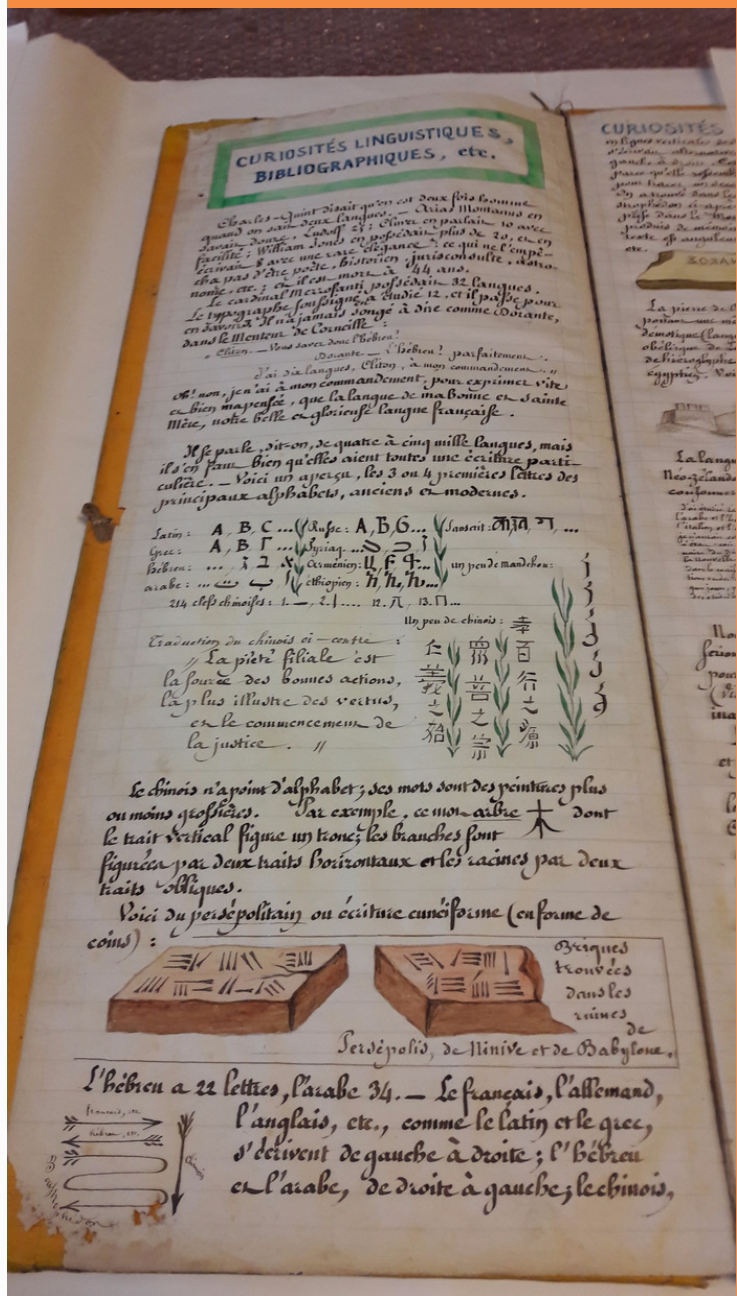 CURIOSITÉS LINGUISTIQUES,
BIBLIOGRAPHIQUES, etc.
Charles-Quint disait qu'on est deux fois homme
quand on sait deux langues. — Arias Montanus en
savait douze, Ludolf 25; Cluvier en parlait 10 avec
facilité; William Jones en possédait plus de 20, et en
écrivait 8 avec une rare élégance : ce qui ne l'empê-
cha pas d'être poète, historien, jurisconsulte, astro-
nome, etc.; et il est mort à 44 ans.
Le cardinal Mezzofanti possédait 32 langues.
Le typographe soussigné a étudié 12, et il passe pour
en savoir. Il n'a jamais songé à dire comme Dorante,
dans le Menteur de Corneille :
„ Cliton. — Vous savez donc l'hébreu!
Dorante — L'hébreu! parfaitement :
J'ai dix langues, Cliton, à mon commandement. „
Oh! non, je n'ai à mon commandement, pour exprimer vite
et bien ma pensée, que la langue de ma bonne et sainte
Mère, notre belle et glorieuse langue française.
Il se parle, dit-on, de quatre à cinq mille langues, mais
il s'en faut bien qu'elles aient toutes une écriture parti-
culière. — Voici un aperçu, les 3 ou 4 premières lettres des
principaux alphabets, anciens et modernes.
Latin : A, B, C ... Russe : А, Б, ... Sanscrit :
Grec : Α, Β, Γ ... Syriaq. ...
hébreu : ... ג ב א Arménien : ... un peu de mandchou :
arabe : ... ت ب ا éthiopien : ...
214 clefs chinoises : 1. 一, 2. 丨 .... 12. 八, 13. 冂 ...
Un peu de chinois :
孝百行之源
眾善之宗
仁義之始
Traduction du chinois ci-contre :
„ La piété filiale est
la source des bonnes actions,
la plus illustre des vertus,
et le commencement de
la justice. „
Le chinois n'a point d'alphabet; ses mots sont des peintures plus
ou moins grossières. Par exemple, ce mot arbre 木 dont
le trait vertical figure un tronc; les branches sont
figurées par deux traits horizontaux et les racines par deux
traits obliques.
Voici du persépolitain ou écriture cunéiforme (en forme de
coins) :
Briques
trouvées
dans les
ruines
de
Persépolis, de Ninive et de Babylone.
L'hébreu a 22 lettres, l'arabe 34. — Le français, l'allemand,
l'anglais, etc., comme le latin et le grec,
s'écrivent de gauche à droite; l'hébreu
et l'arabe, de droite à gauche; le chinois,
français, etc.
hébreu, etc.
CURIOSITÉS
en lignes verticales
gauche à
La pierre de
démotique
obélisque de
de hiéroglyphe
La langue
Néo-zéland